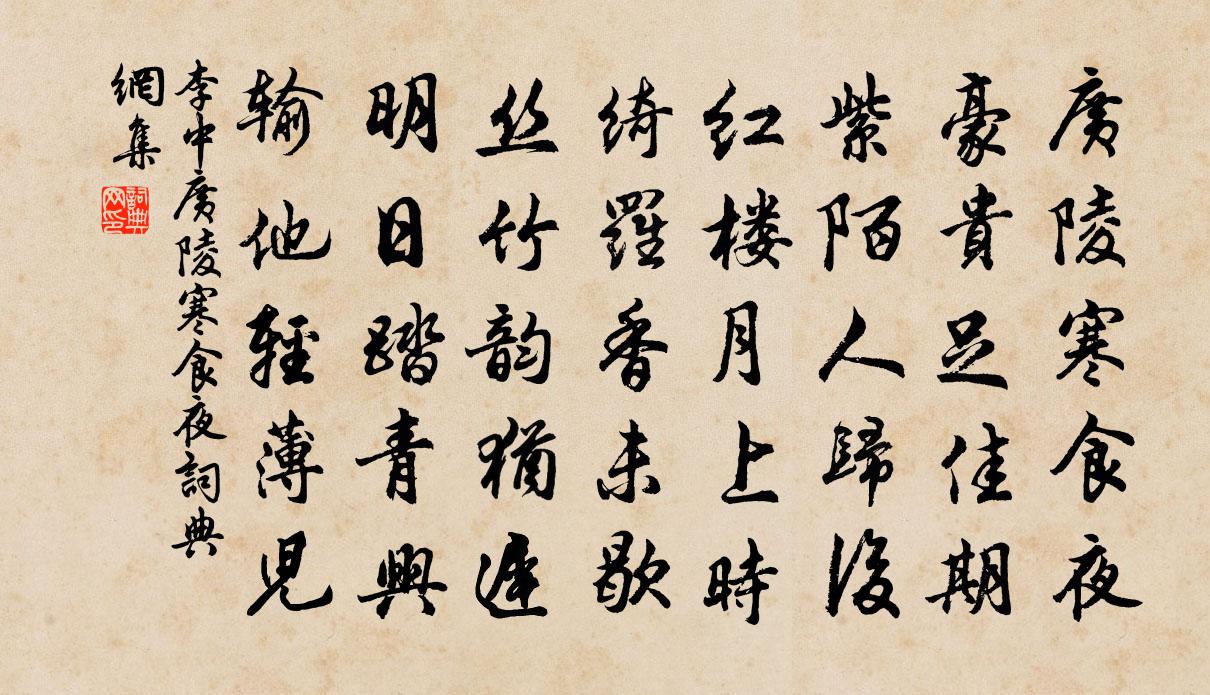 廣陵寒食夜
豪貴足佳期
紫陌人歸後
红楼月上時
绮羅香未歇
丝竹韵猶遲
明日踏青興
输他輕薄児
李中廣陵寒食夜詞典
網集
詞典
网印